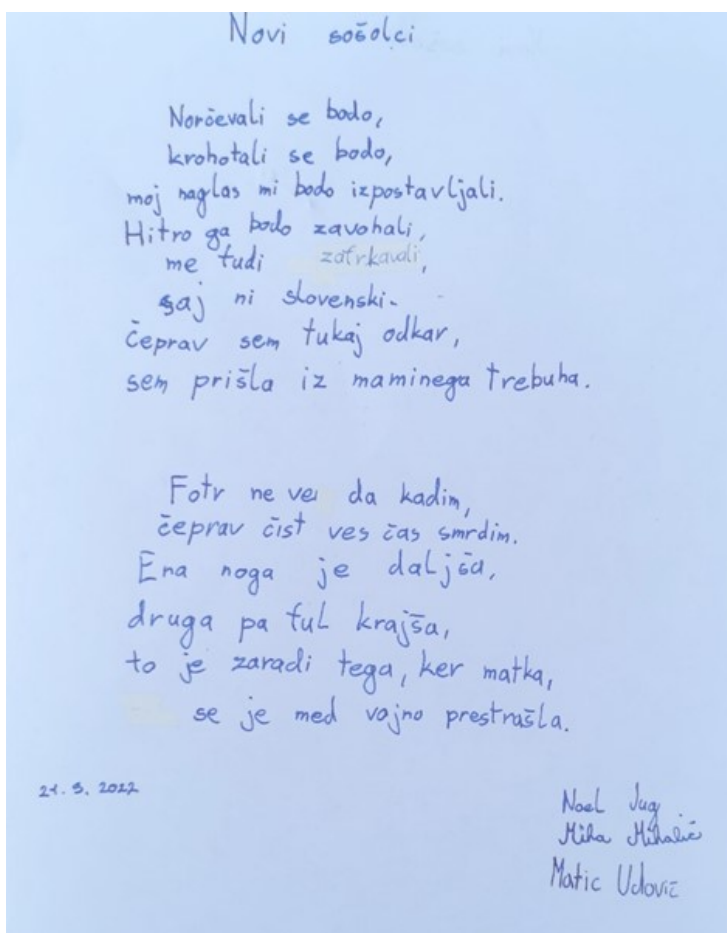 Novi sošolci
Norčevali se bodo,
krohotali se bodo,
moj naglas mi bodo izpostavljali.
Hitro ga bodo zavohali,
me tudi zafrkavali,
saj ni slovenski.
Čeprav sem tukaj odkar,
sem prišla iz maminega trebuha.
Fotr ne ve da kadim,
čeprav čist ves čas smrdim.
Ena noga je daljša,
druga pa ful krajša,
to je zaradi tega, ker matka,
se je med vojno prestrašla.
2022
Noel Jug
Miha Mihalič
Matic Udovič